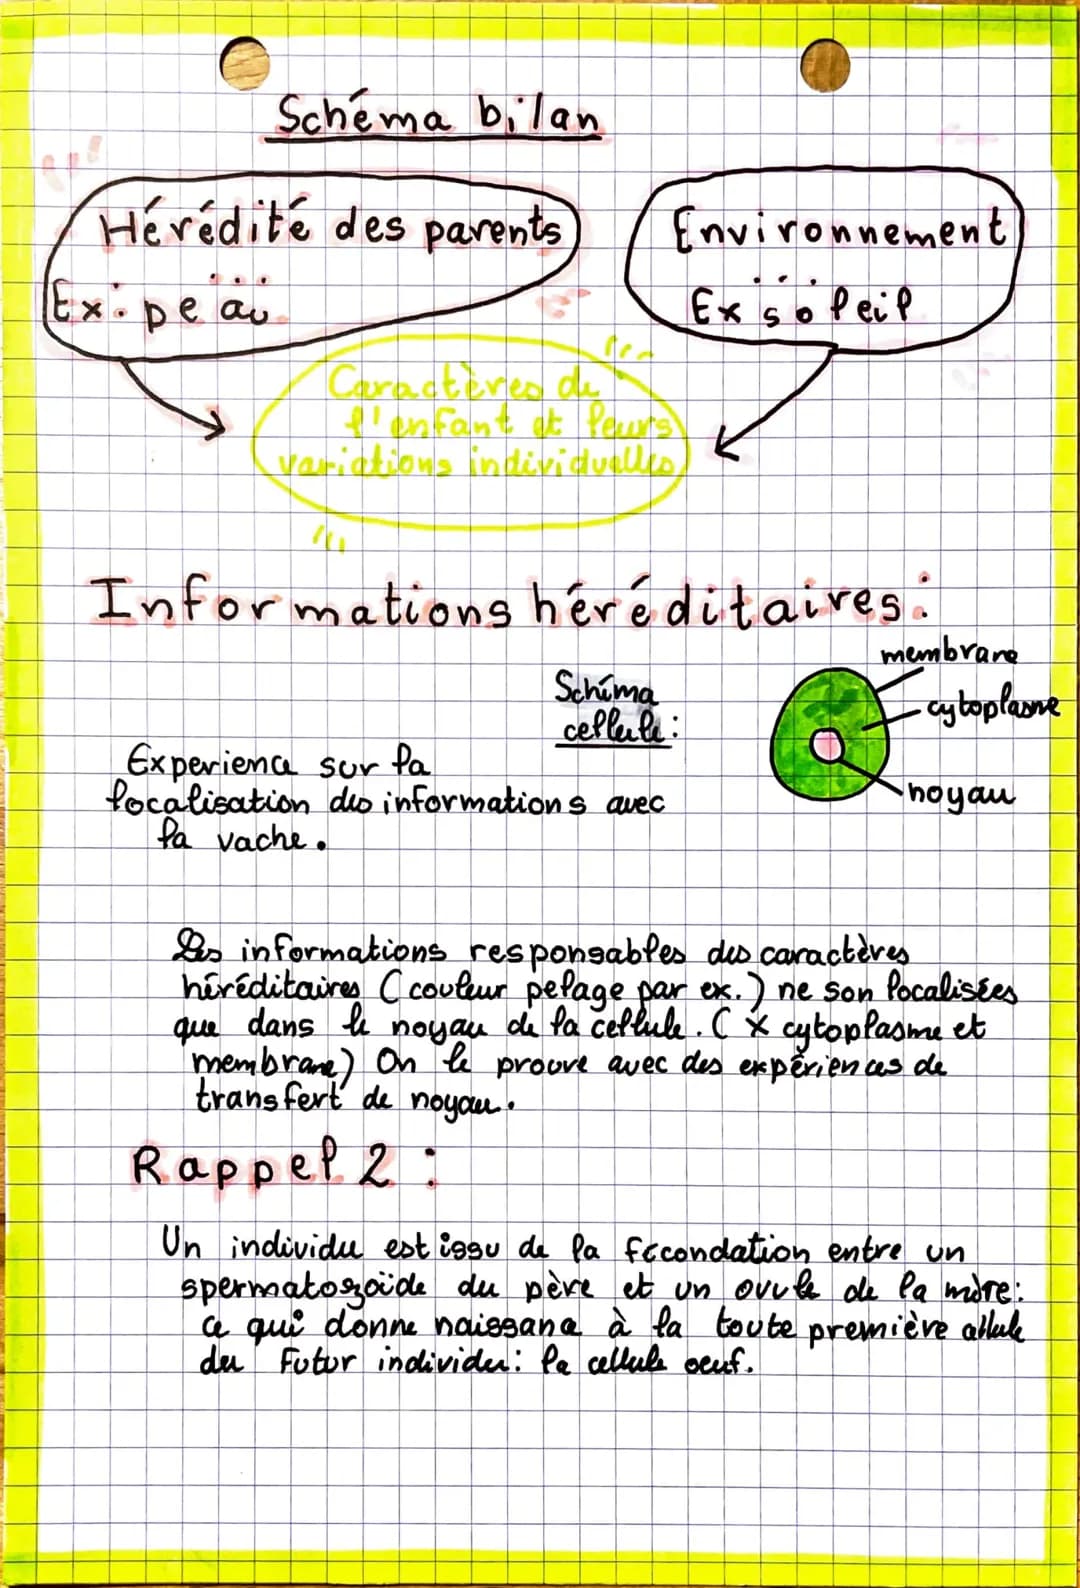 Schéma bilan
Hérédité des parents
Ex: peau
Environnement
Ex soleil
Caractères de
l'enfant et leurs
variations individuelles
Informations héréditaires:
membrane
Schéma
cellule:
cytoplasme
noyau
Experience sur la
localisation des informations avec
la vache.
Les informations responsables des caractères
héréditaires (couleur pelage par ex.) ne son localisées
que dans le noyau de la cellule. (X cytoplasme et
membrane) On le prouve avec des expériences de
transfert de noyau.
Rappel 2:
Un individu est issu de la fécondation entre un
spermatozoïde du père et un ovule de la mère:
ce qui donne naissance à la toute première cellule
du futur individu: la cellule oeuf.